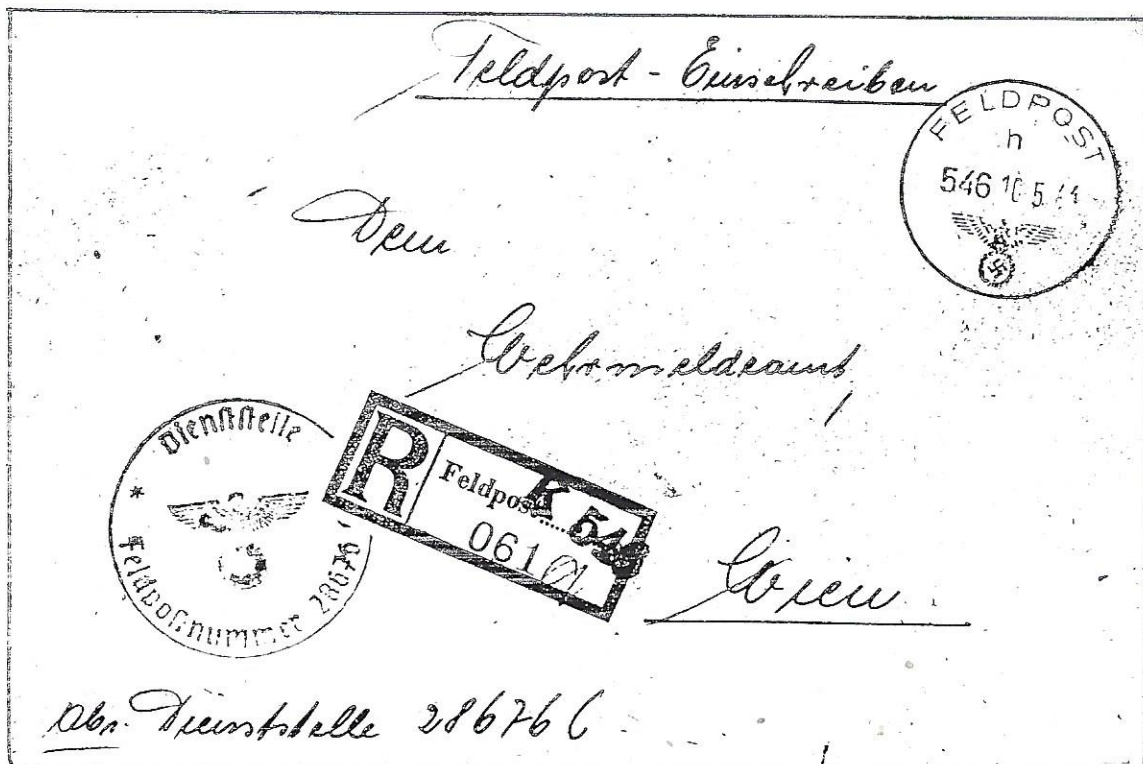 Feldpost - Einschreiben
FELDPOST
h
546 10 5 41
Dem
Wehrmeldeamt
Dienststelle
R Feldpost K 546
061
* Feldpostnummer 28676
Wien
Abs. Dienststelle 28676 C